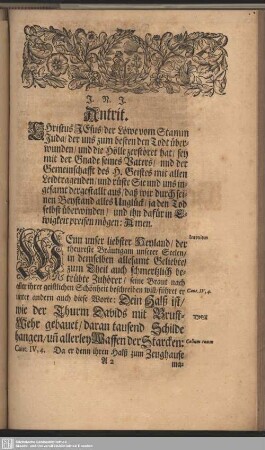 J. N. J.
Antrit.
CHristus JEsus der Löwe vom Stamm
Juda/ der uns zum besten den Todt über-
wunden/ und die Hölle zerstöret hat/ sey
mit der Gnade seines Vaters/ und der
Gemeinschafft des H. Geistes mit allen
Leidtragenden/ und rüste Sie und uns in-
gesamt dergestalt aus/ daß wir durch sei-
nen Beystand alles Unglück/ ja den Tod
selbst überwinden/ und ihn dafür in E-
wigkeit preisen mögen: Amen.
WEnn unser liebster Heyland/ der
theureste Bräutigam unserer Seelen/
in demselben allesamt Geliebte/
zum Theil auch schmertzlich be-
trübte Zuhörer/ seine Braut nach
aller ihrer geistlichen Schönheit beschreiben will/ führet er
unter andern auch diese Worte: Dein Halß ist/
wie der Thurm Davids mit Brust-
Wehr gebauet/ daran tausend Schilde
hangen/ uñ allerley Waffen der Starcken:
Cant. IV, 4. Da er denn ihren Halß zum Zeughause
A 2 ma-
Introitus
Cant. IV, 4.